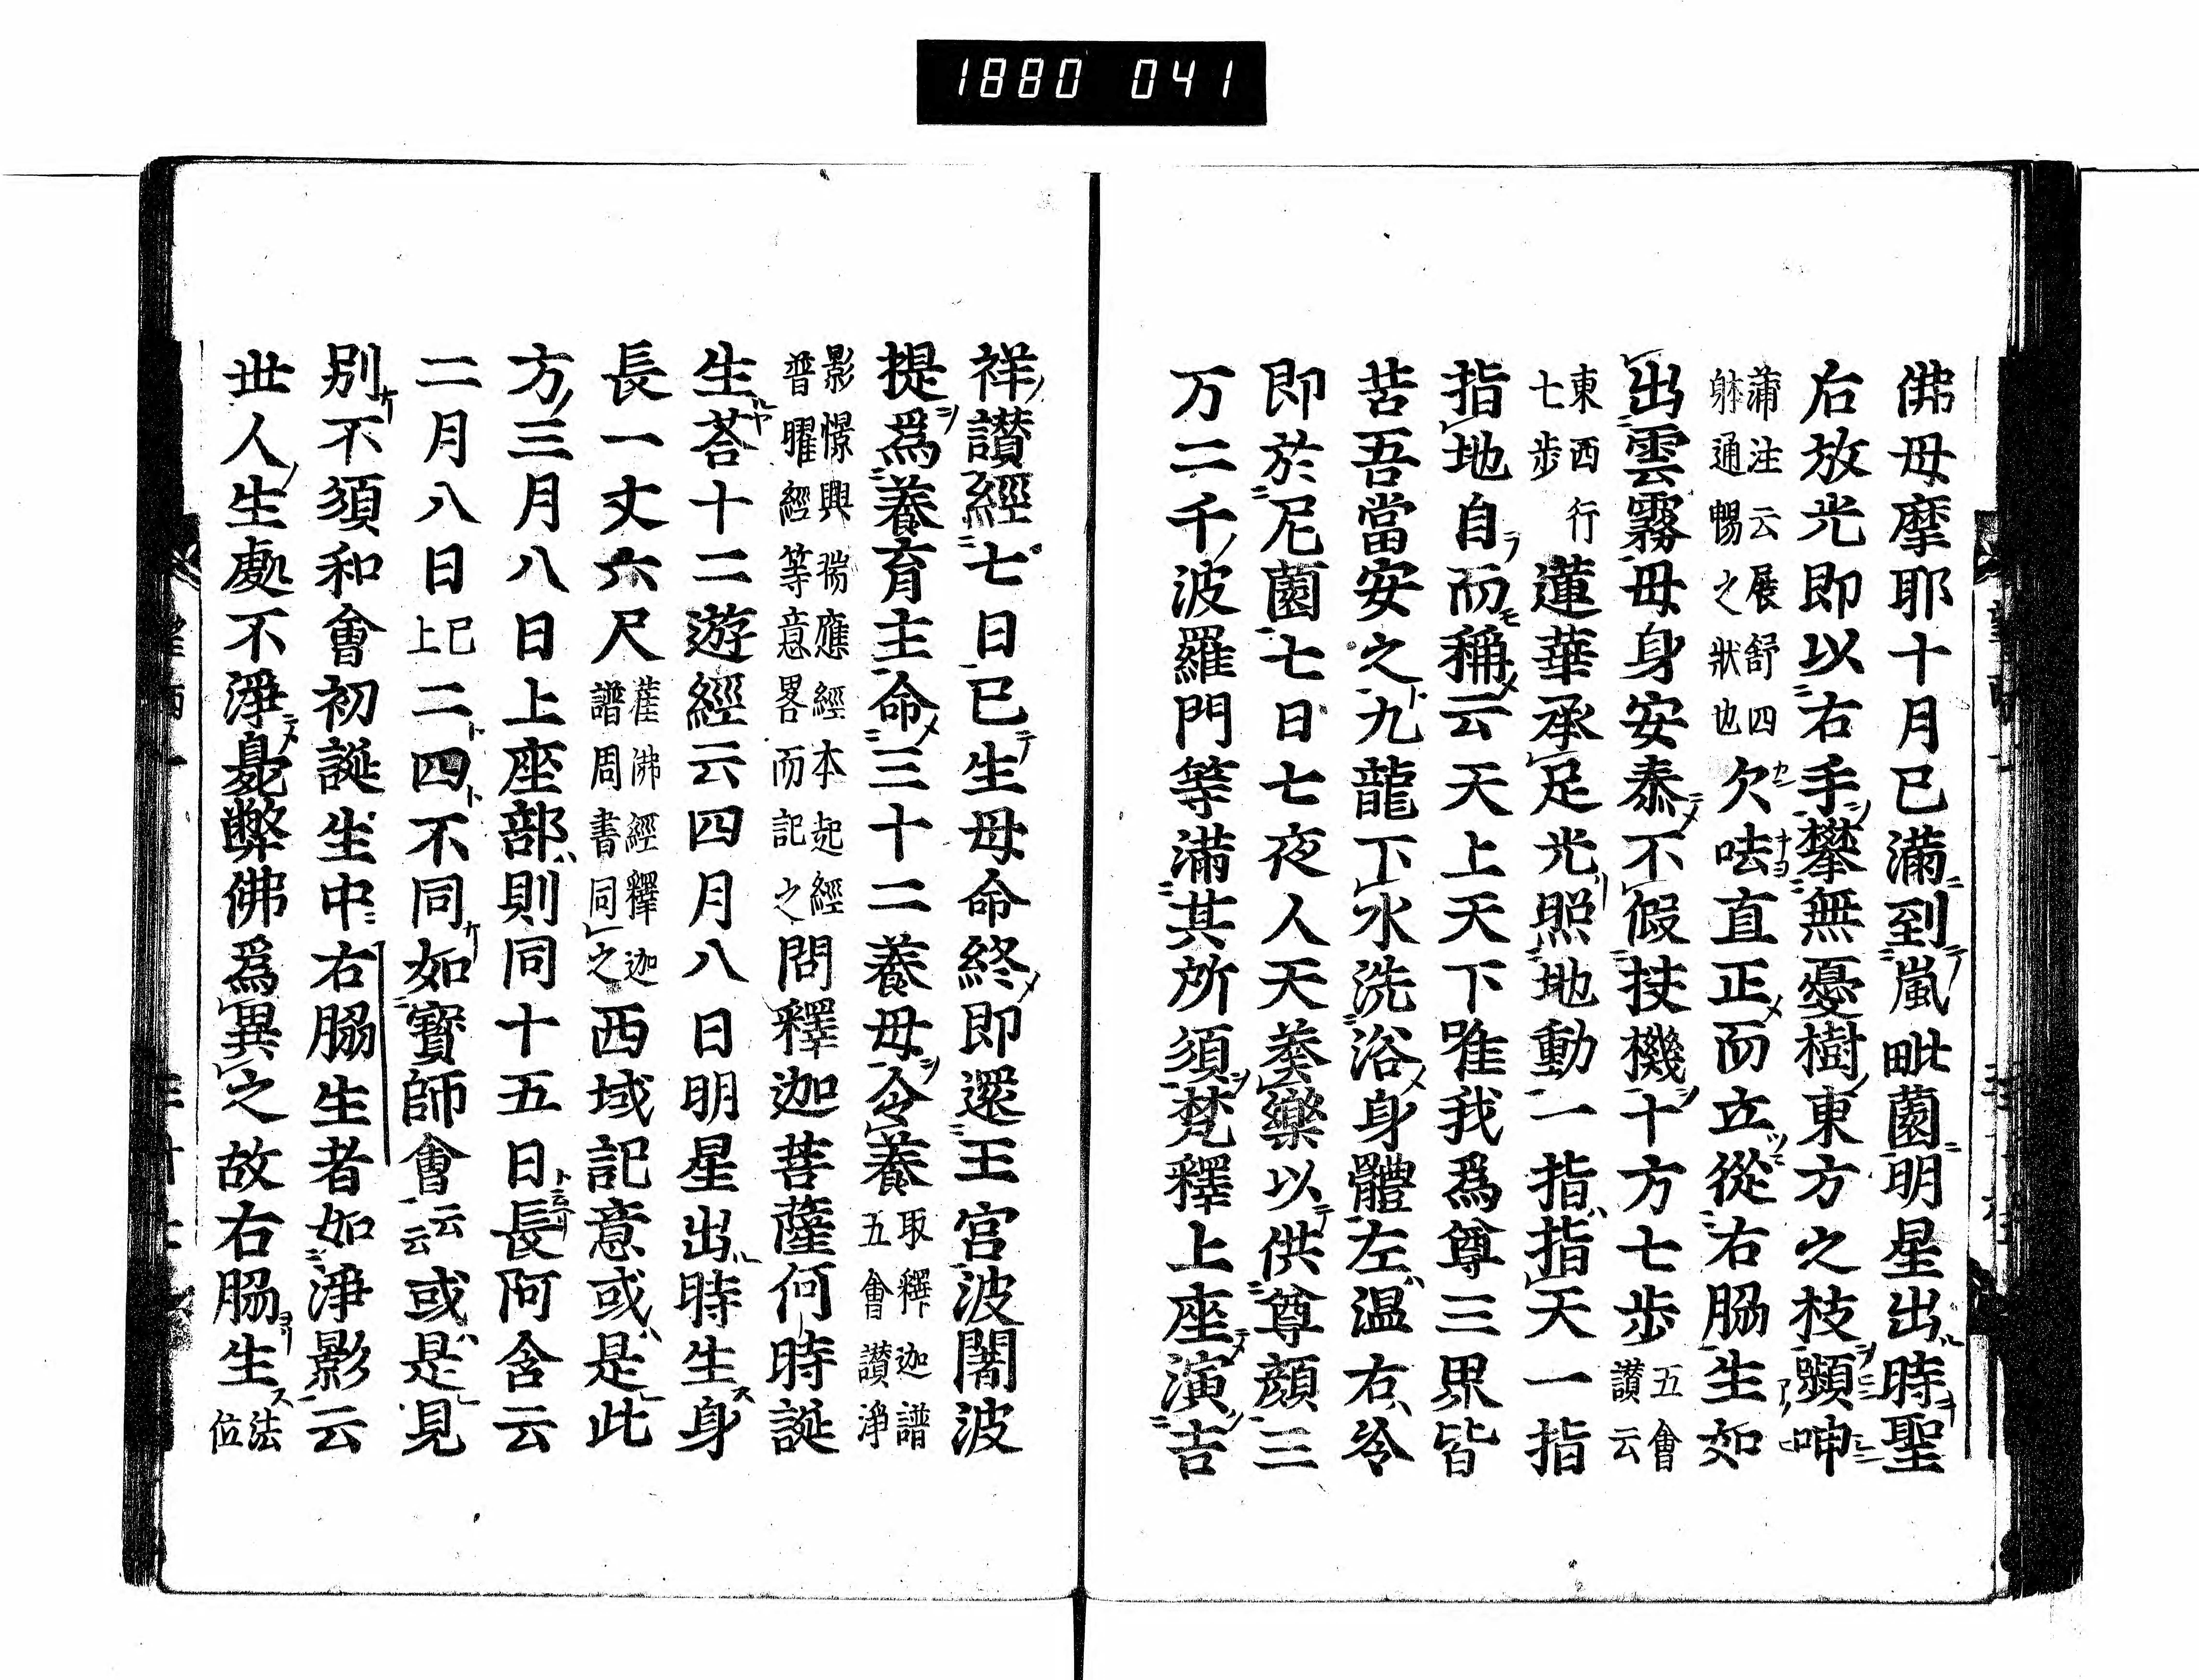 1880 041
佛母摩耶十月已滿到嵐毗薗明星出時聖
后放光即以右手攀無憂樹東方之枝顰呻
蒲注云展舒四
躰通暢之狀也
欠呿直正而立從右脇生如
出雲霧母身安泰不假扶機十方七步
五會
讃云
東西行
七步
蓮華承足光照地動一指指天一指
指地自而稱云天上天下唯我爲尊三界皆
苦吾當安之九龍下水洗浴身體左温右冷
即於尼薗七日七夜人天奏樂以供尊顔三
万二千波羅門等滿其所須梵釋上座演吉
祥讃經七日已生母命終即還王宮波闍波
提爲養育主命三十二養母令養
取釋迦譜
五會讃淨
影憬興瑞應經本起經
普曜經等意畧而記之
問釋迦菩薩何時誕
生荅十二遊經云四月八日明星出時生身
長一丈六尺
灌佛經釋迦
譜周書同之
西域記意或是此
方三月八日上座部則同十五日長阿含云
二月八日
已
上
二四不同如寳師會
云
云
或是見
別不須和會初誕生中右脇生者如淨影云
世人生處不淨臰弊佛爲異之故右脇生
法
位